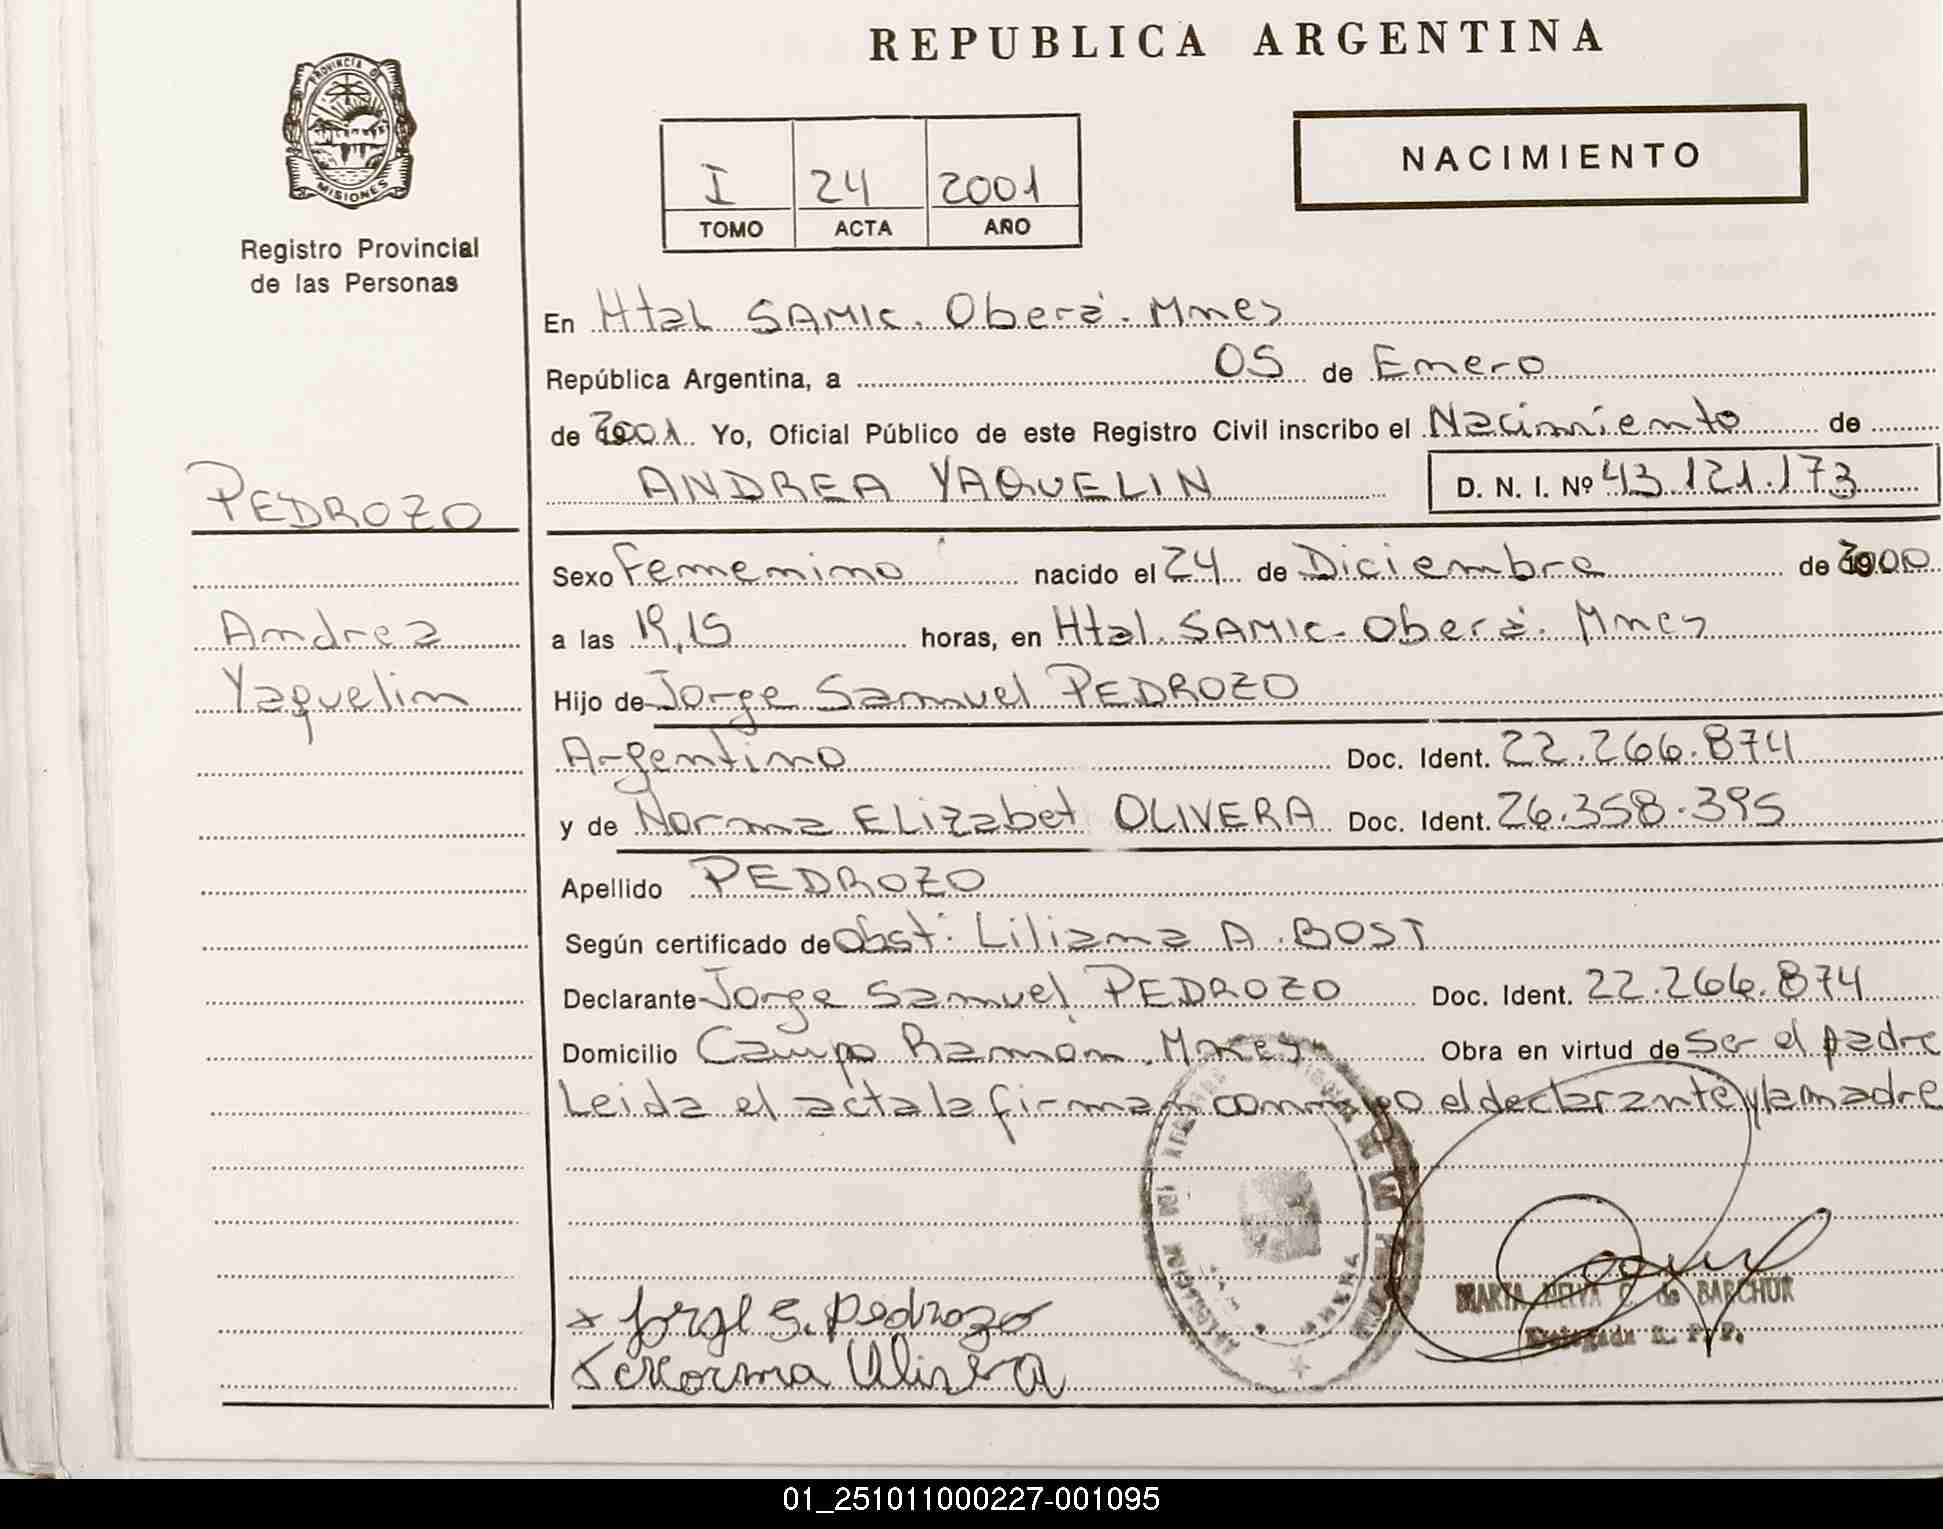 REPUBLICA ARGENTINA
PROVINCIA D
MISIONES
Registro Provincial
de las Personas
I 24 2001
TOMO ACTA AÑO
NACIMIENTO
En Htal SAMIC. Oberá. Mnes
República Argentina, a 05 de Enero
de 2001 Yo, Oficial Público de este Registro Civil inscribo el Nacimiento de
PEDROZO
ANDREA YAQUELIN D. N. I. Nº 43.121.173
Sexo Femenino nacido el 24 de Diciembre de 2000
Andrea
Yaquelin
a las 19,15 horas, en Htal. SAMIC. Oberá. Mnes
Hijo de Jorge Samuel PEDROZO
Argentino Doc. Ident. 22.266.874
y de Norma ELizabet OLIVERA Doc. Ident. 26.358.395
Apellido PEDROZO
Según certificado de obst: Liliana A. BOST
Declarante Jorge Samuel PEDROZO Doc. Ident. 22.266.874
Domicilio Campo Ramón. Mnes Obra en virtud de Ser el padre
Leida el acta la firman conmigo el declarante y la madre
Jorge S. pedrozo
Norma Olivera
MARTA C. de BARCHUK
Delegada R. P. P.
01_251011000227-001095